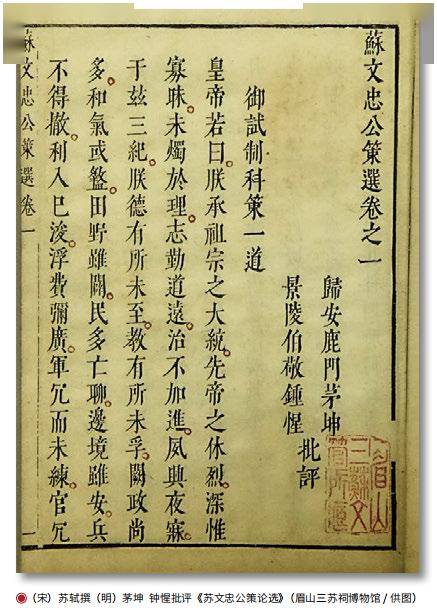 蘇文忠公策選卷之一
歸安鹿門茅坤
景陵伯敬鍾惺
批評
眉山
三蘇文
管所
御試制科策一道
皇帝若曰朕承祖宗之大統先帝之休烈深惟
寡昧未燭於理志勤道遠治不加進夙興夜寐
于玆三紀朕德有所未至教有所未孚闕政尚
多和氣或盭田野雖闢民多亡聊邊境雖安兵
不得撤利入已浚浮費彌廣軍冗而未練官冗
蘇文忠公策選 卷一
(宋) 苏轼撰 (明) 茅坤 钟惺批评《苏文忠公策论选》(眉山三苏祠博物馆 / 供图)